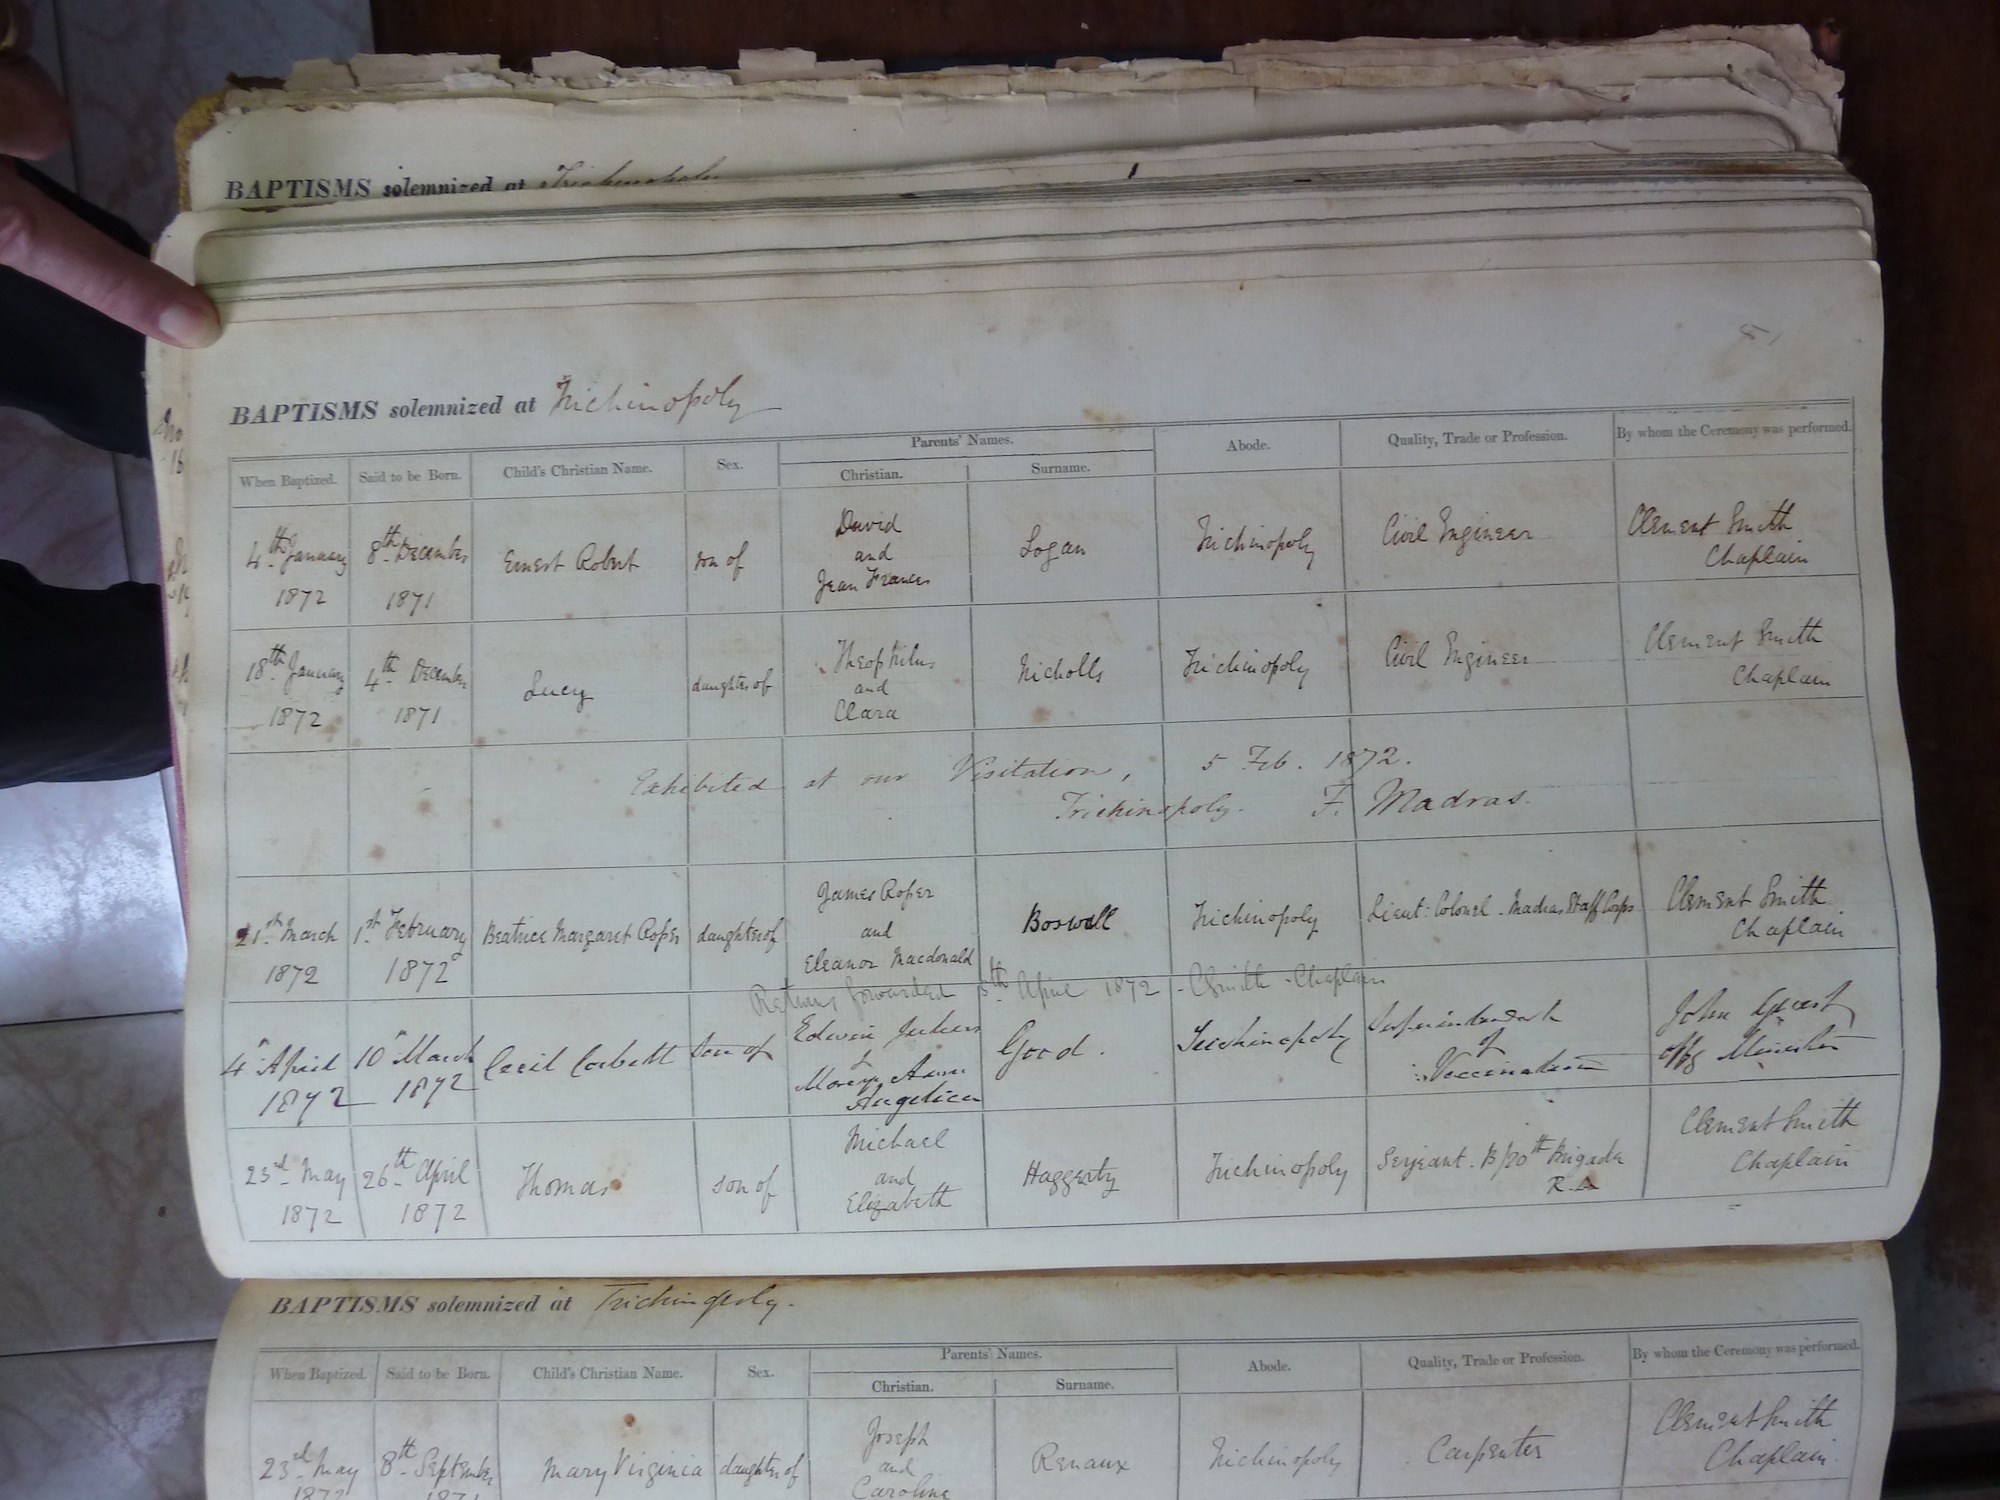 BAPTISMS solemnized at Trichinopoly
BAPTISMS solemnized at Trichinopoly
When Baptized. Said to be Born. Child's Christian Name. Sex. Parents' Names. Abode. Quality, Trade or Profession. By whom the Ceremony was performed.
Christian. Surname.
4th January 1872 8th December 1871 Ernest Robert son of David and Jean Frances Logan Trichinopoly Civil Engineer Clement Smith Chaplain
18th January 1872 4th December 1871 Lucy daughter of Theophilus and Clara Nicholls Trichinopoly Civil Engineer Clement Smith Chaplain
Exhibited at our Visitation, 5 Feb. 1872.
Trichinopoly. F. Madras.
21st March 1872 1st February 1872 Beatrice Margaret Roper daughter of James Roper and Eleanor Macdonald Boswell Trichinopoly Lieut: Colonel. Madras Staff Corps Clement Smith Chaplain
Returns forwarded April 1872 - CSmith - Chaplain
4th April 1872 10th March 1872 Cecil Corbett son of Edwin Julius & Mary Anne Angelica Good. Trichinopoly Superintendent of Vaccination John Guest offg Minister
23rd May 1872 26th April 1872 Thomas son of Michael and Elizabeth Haggerty Trichinopoly Serjeant. B/20th Brigade R.A Clement Smith Chaplain
BAPTISMS solemnized at Trichinopoly.
When Baptized. Said to be Born. Child's Christian Name. Sex. Parents' Names. Abode. Quality, Trade or Profession. By whom the Ceremony was performed.
Christian. Surname.
23rd May 1872 8th September 1871 Mary Virginia daughter of Joseph and Caroline Renaux Trichinopoly Carpenter Clement Smith Chaplain.